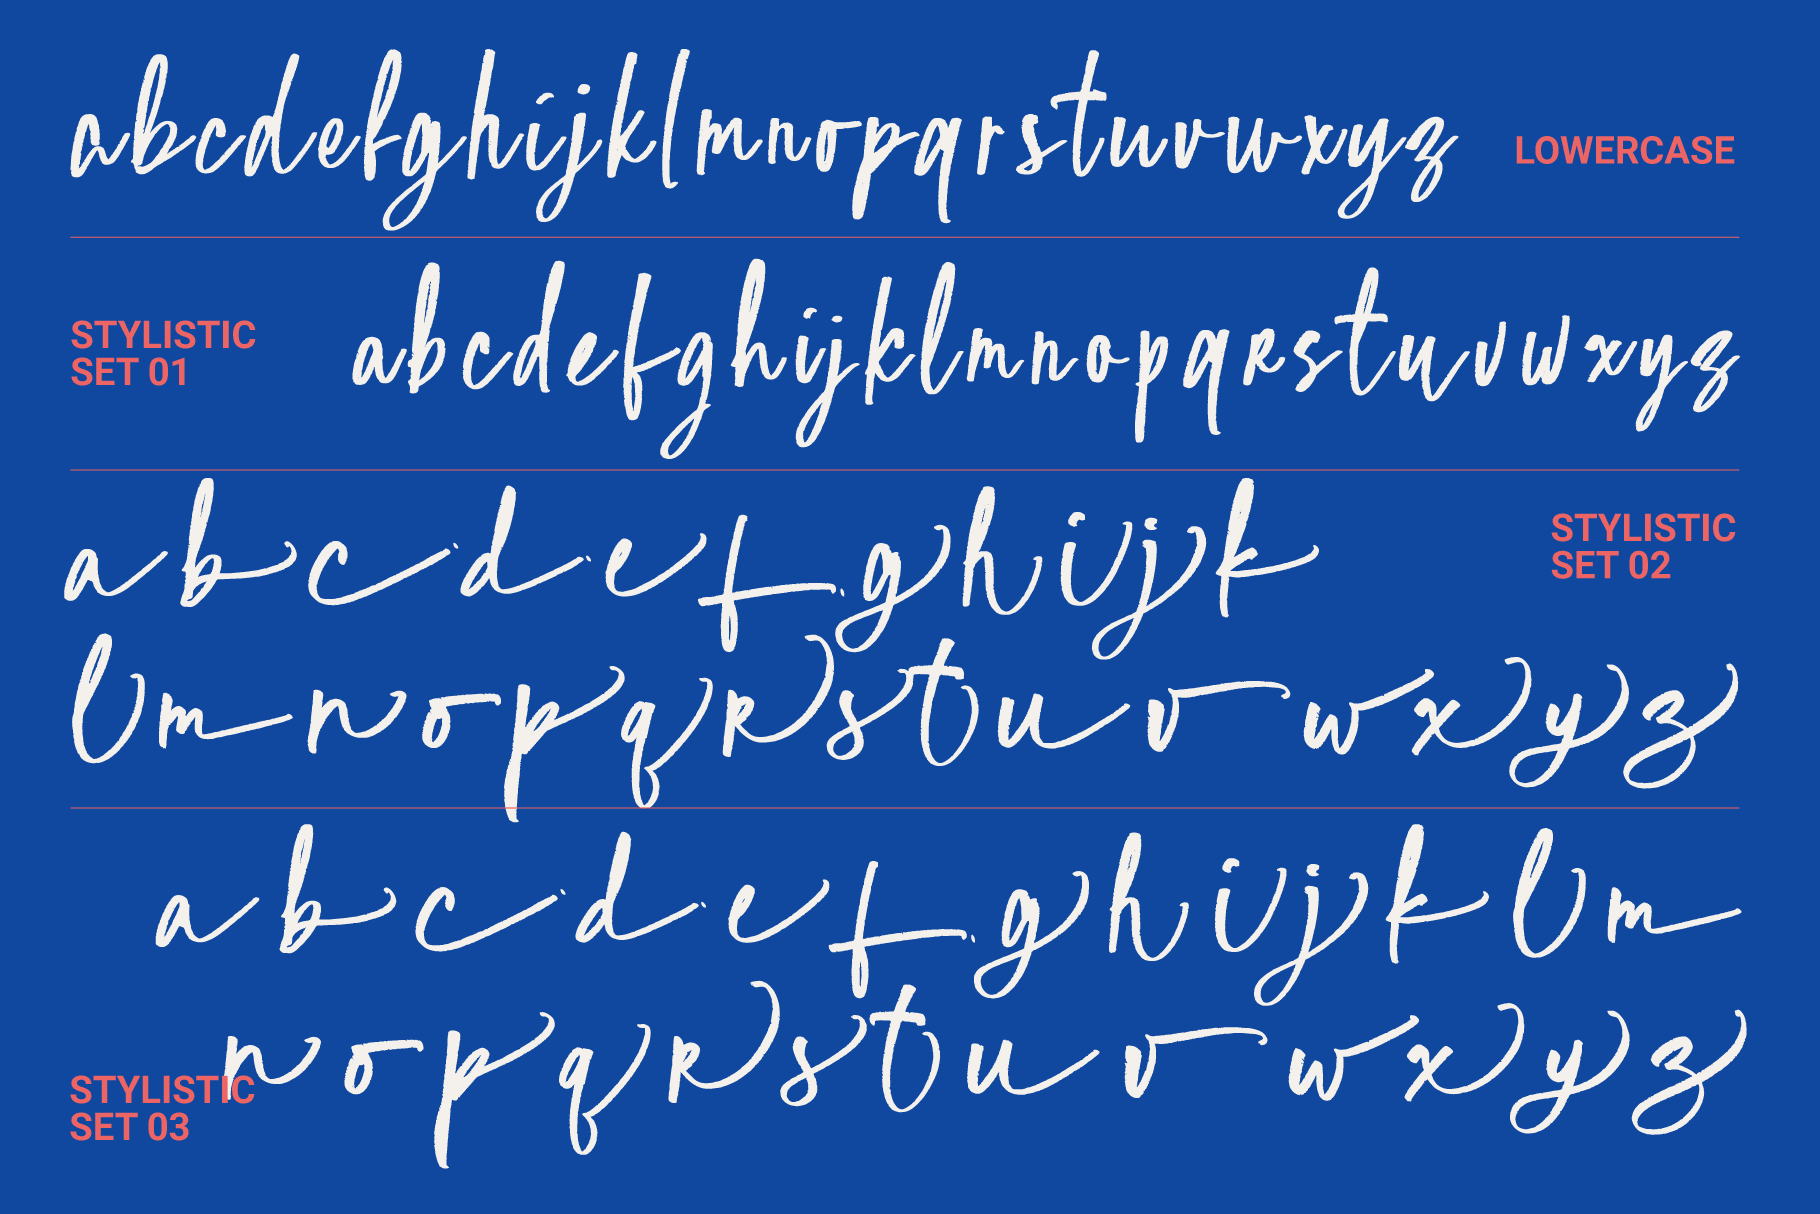 abcdefghijklmnopqrstuvwxyz
LOWERCASE
STYLISTIC
SET 01
abcdefghijklmnopqrstuvwxyz
abcdefghijk
STYLISTIC
SET 02
lmnopqrstuvwxyz
abcdefghijklm
nopqrstuvwxyz
STYLISTIC
SET 03